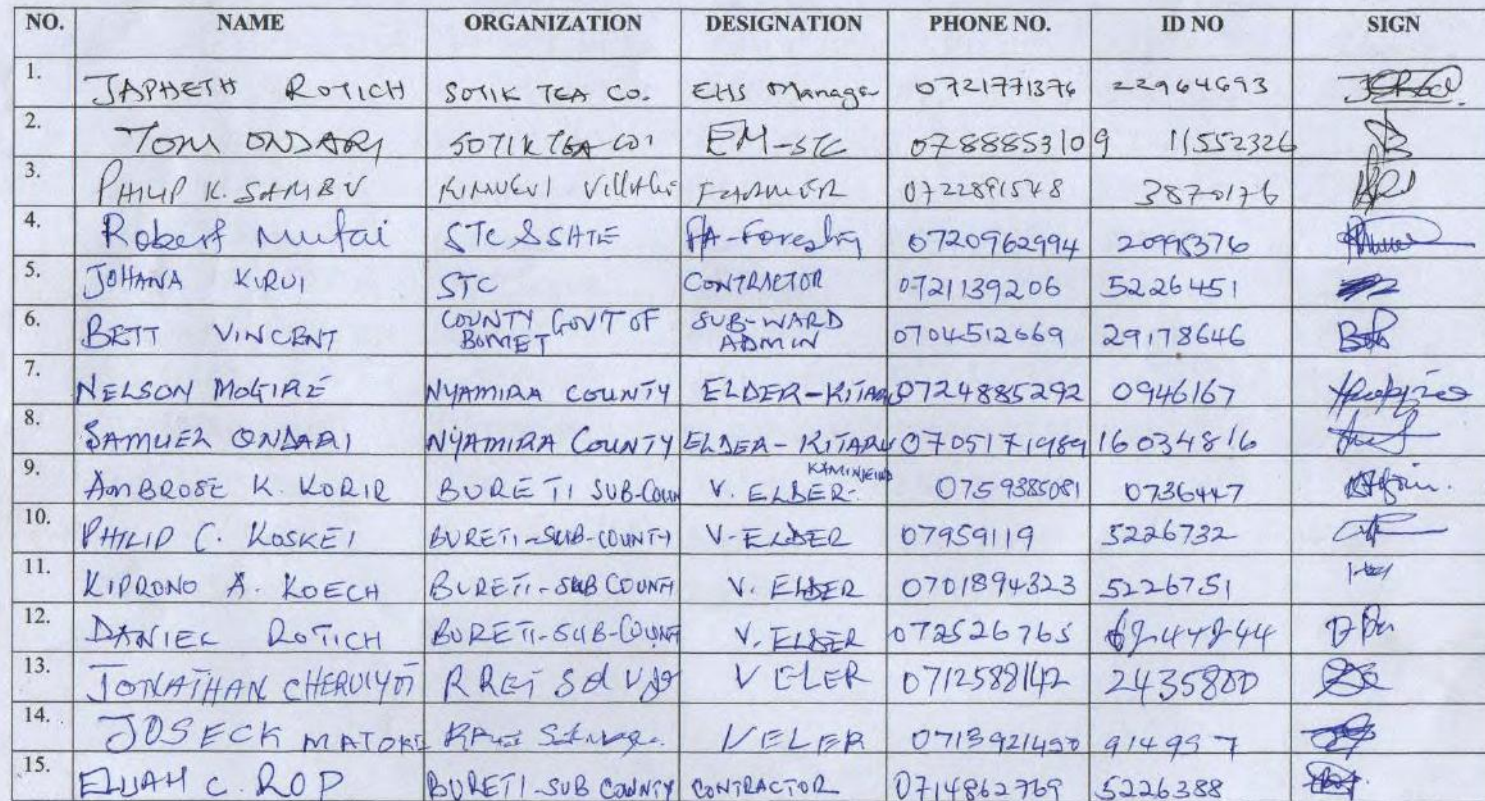 NO. NAME ORGANIZATION DESIGNATION PHONE NO. ID NO SIGN
1. JAPHETH ROTICH SOTIK TEA CO. EHS Manager 0721771376 22964693
2. TOM ONDARI SOTIK TEA CO. EM-STC 0788853109 11552326
3. PHILIP K. SAMBU KIMUGUI VILLAGE FARMER 0722891548 3870176
4. Robert Mutai STC & SHTE FA-Forestry 0720962994 20995376
5. JOHANA KIRUI STC CONTRACTOR 0721139206 5226451
6. BETT VINCENT COUNTY GOV'T OF BOMET SUB-WARD ADMIN 0704512669 29178646
7. NELSON MOGIRE NYAMIRA COUNTY ELDER-KITARU 0724885292 0946167
8. SAMUEL ONDARI NYAMIRA COUNTY ELDER-KITARU 0705171989 16034816
9. AMBROSE K. KORIR BURETI SUB-COUN V. ELDER. 0759385081 0736447
10. PHILIP C. KOSKEI BURETI-SUB-COUNTY V-ELDER 07959119 5226732
11. KIPRONO A. KOECH BURETI-SUB COUNT V. ELDER 0701894323 5226751
12. DANIEL ROTICH BURETI-SUB-COUNT V. ELDER 072526765
13. JONATHAN CHERUIYOT V ELER 0712588142 2435800
14. JOSECK MATOKE V ELER 0713921450 914997
15. ELIJAH C. ROP BURETI-SUB COUNTY CONTRACTOR 0714862769 5226388